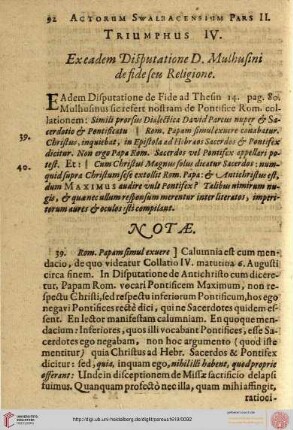 92 ACTORUM SWALBACENSIUM PARS II.
TRIUMPHUS IV.
Ex eadem Disputatione D. Mulhusini
de fide seu Religione.
EAdem Disputatione de Fide ad Thesin 14. pag. 80.
Mulhusinus sic refert nostram de Pontifice Rom. col-
lationem: Simili prorsus Dialectica David Pareus nuper & Sa-
cerdotio & Pontificatu | Rom. Papam simul exuere conabatur.
39.
Christus, inquiebat, in Epistola ad Hebræos Sacerdos & Pontifex
dicitur. Non ergo Papa Rom. Sacerdos vel Pontifex appellari po-
40.
test. Et: | Cum Christus Magnus solus dicatur Sacerdos: num-
quid supra Christum sese extollit Rom. Papa: & Antichristus est,
dum MAXIMUS audire vult Pontifex? Talibus nimirum nu-
gis, & quæ nec ullum responsum merentur inter literatos, imperi-
torum aures & oculos isti compilant.
NOTÆ.
39. Rom. Papam simul exuere] Calumnia est cum men-
dacio, de quo videatur Collatio IV. matutina 6. Augusti
circa finem. In Disputatione de Antichristo cum dicere-
tur, Papam Rom. vocari Pontificem Maximum, non re-
spectu Christi, sed respectu inferiorum Pontificum, hos ego
negavi Pontifices recte dici, qui ne Sacerdotes quidem es-
sent. En lector manifestam calumniam. En quoque men-
dacium: Inferiores, quos illi vocabant Pontifices, esse Sa-
cerdotes ego negabam, non hoc argumento (quod iste
mentitur) quia Christus ad Hebr. Sacerdos & Pontifex
dicitur: sed, quia, inquam ego, nihil illi habent, quod proprie
offerant: Unde in disceptionem de Missæ sacrificio delapsi
fuimus. Quanquam profecto nec illa, quam mihi affingit,
ratioci-
http://digi.ub.uni-heidelberg.de/diglit/pareus1619/0092